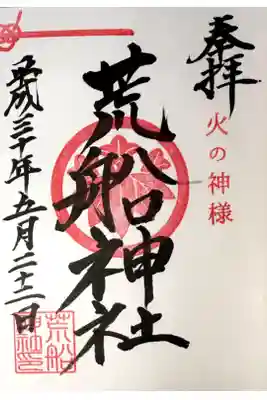 奉拝
火の神様
荒船神社
平成三十年五月二十二日
荒船
神社印